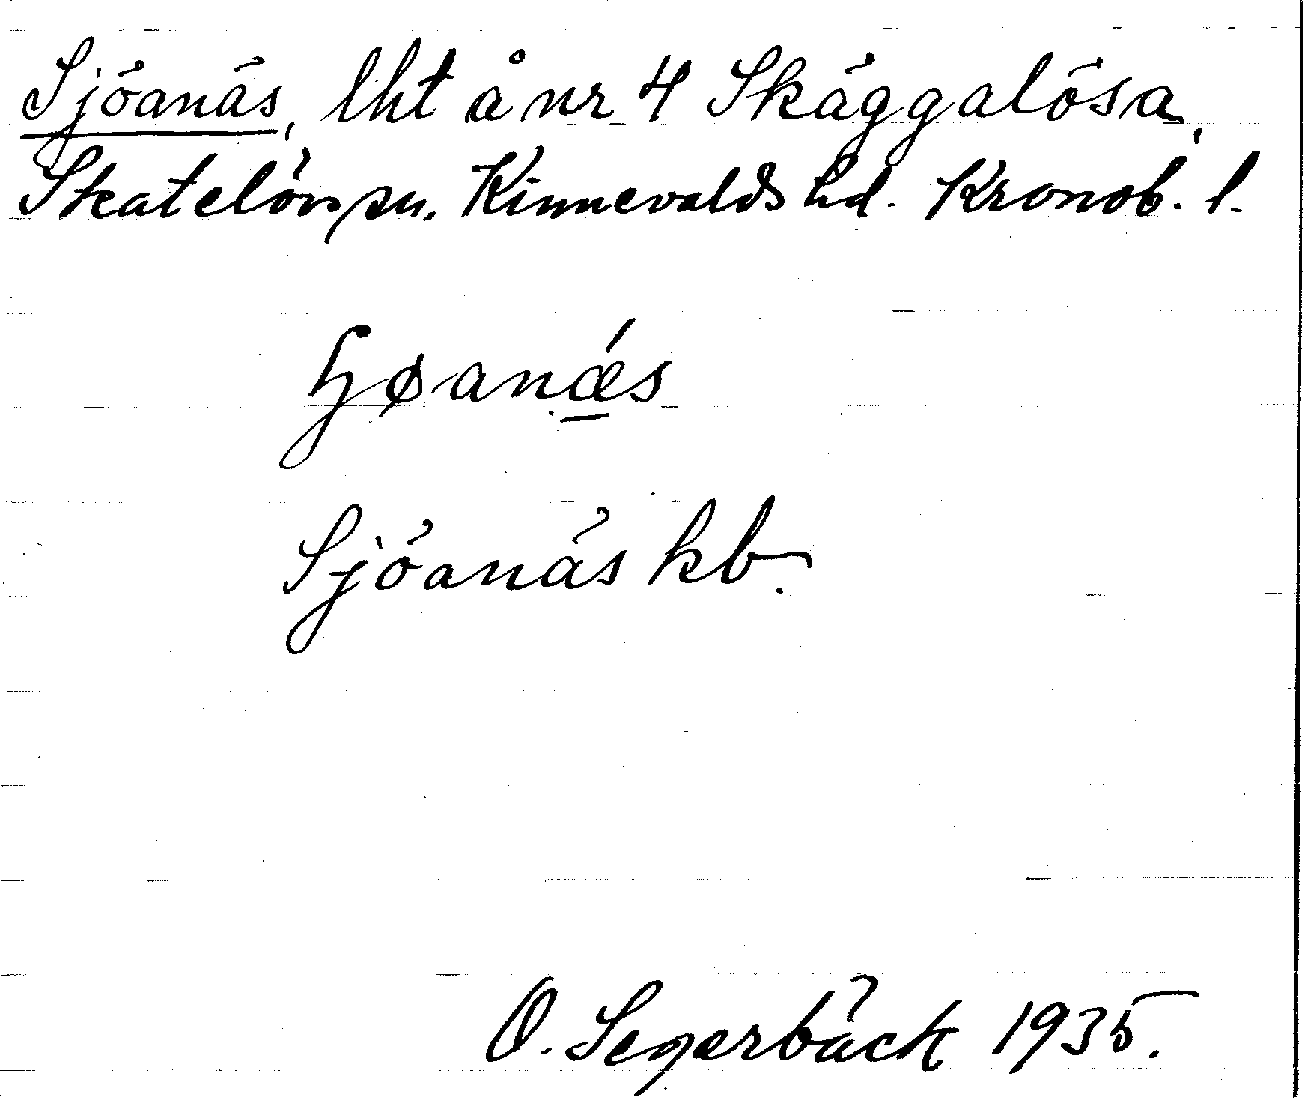 Sjöanäs, lht å nr 4 Skäggalösa,
Skatelövs sn. Kinnevalds hd. Kronob. l.
ɧøanǽs
Sjöanäs kb.
O. Segerbäck 1935.